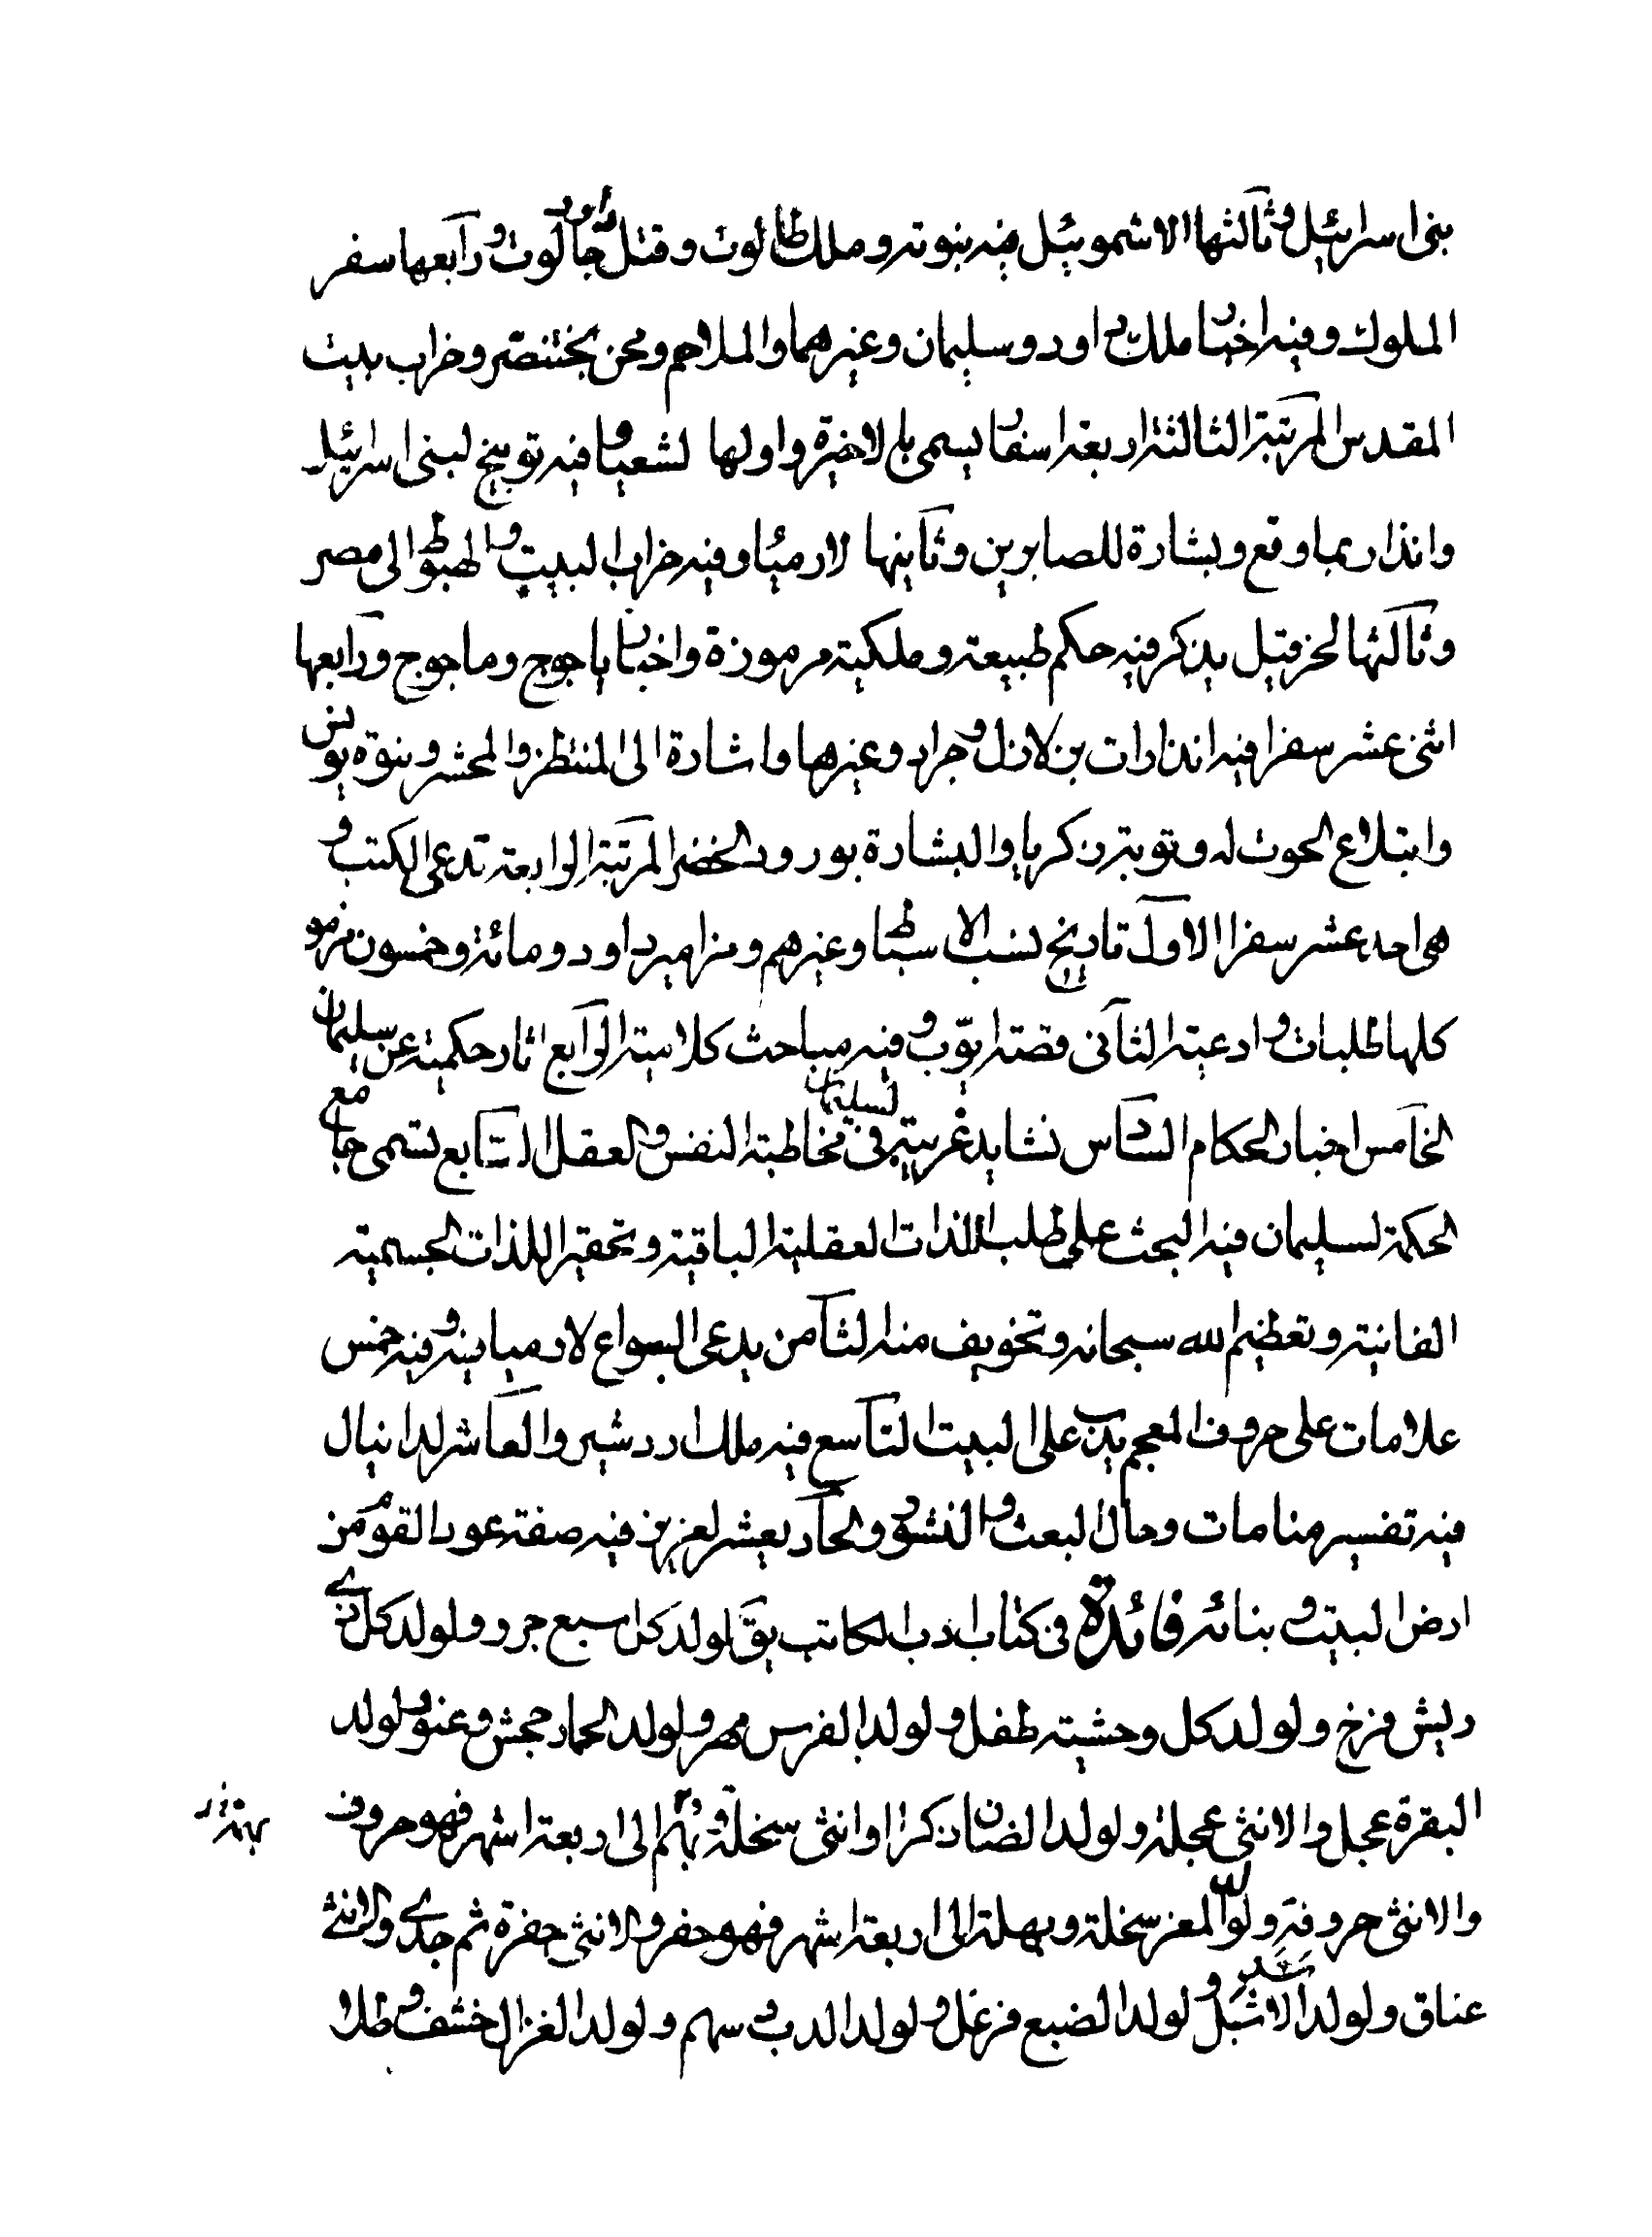 بنى اسرائيل وثالثها الاشموييل فيه نبوته وملك طالوت وقتل داود جالوت ورابعها سفر
الملوك وفيه اخبار ملك داود وسليمان وغيرهما والملاحم ومحن بختنصر وخراب بيت
المقدس المرتبة الثالثة اربعة اسفار يسمى بالاخيرة واولها لشعيا وفيه توبيخ لبنى اسرائيل
وانذار بما وقع وبشارة للصابرين وثانيها لارميا وفيه خراب البيت والهبوط الى مصر
وثالثها لحزقيل يذكر فيه حكم طبيعة وملكية مرموزة واخبار ياجوج وماجوج ورابعها
اثنى عشر سفرا فيه انذارات بزلازل وجراد وغيرها واشارة الى المنتظر والمحشر ونبوة يونس
وابتلاع الحوت له وتوبة زكريا والبشارة بورود الخضر المرتبة الرابعة تدعى الكتب و
هى احد عشر سفرا الاول تاريخ نسب الاسباط وغيرهم ومزامير داود ومائة وخمسون مزمور
كلها طلبات وادعية الثانى قصة ايوب وفيه مباحث كلامية الرابع اثار حكمية عن سليمان
الخامس اخبار الحكام السادس نشايد غريبة لسليمان فى مخاطبة النفس والعقل السابع تسمى جامع
الحكمة لسليمان فيه البحث على طلب اللذات العقلية الباقية وتحقير اللذات الجسمية
الفانية وتعظيم الله سبحانه وتخويف منه الثامن يدعى البسواع لارميا فيه وفيه خمس
علامات على حروف المعجم يدب على البيت التاسع فيه ملك اردشير والعاشر لدانيال
فيه تفسير منامات وحال البعث والنشور والحاديعشر لعزيز فيه صفة عود القوم من
ارض البيت وبنائه فائدة فى كتاب ادب الكاتب يق لولد كل سبع جرو ولولد كل ذى
ريش فرخ ولولد كل وحشية طفل ولولد الفرس مهر ولولد الحمار جحش وعفو ولولد
البقرة عجل والانثى عجلة ولولد الضان ذكرا او انثى سخلة وبهم الى اربعة اشهر فهو خروف
والانثى خروفة ولولد المعز سخلة وبهمة الى اربعة اشهر فهو جفر والانثى جفرة ثم جدى والانثى
عناق ولولد الاسد شبل ولولد الضبع فرعل ولولد الدب وسهم ولولد الغزال خشف وطلا